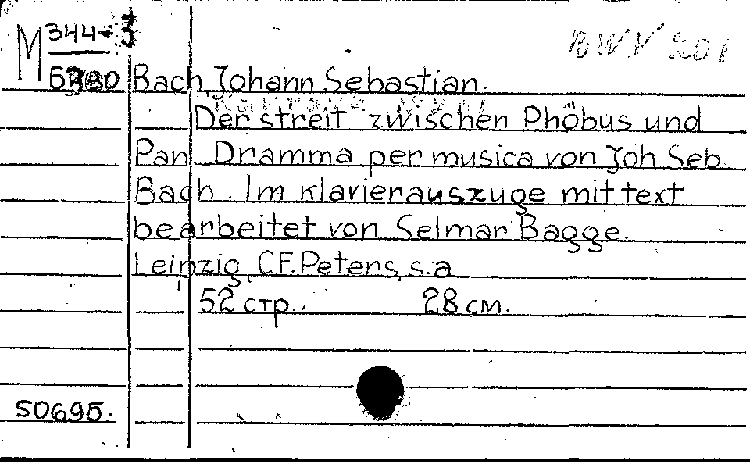 M 344-3
BWV 201
Bach, Johann Sebastian.
Der streit zwischen Phöbus und
Pan. Dramma per musica von Joh. Seb.
Bach. Im Klavierauszuge mit text
bearbeitet von Selmar Bagge.
Leipzig, C.F. Peters, s.a.
52 стр. 28 см.
50695.